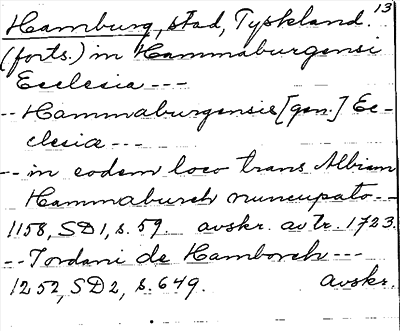 Hamburg, stad, Tyskland. 13
(forts.) in Hammaburgensi
Ecclesia ---
-- Hammaburgensis [gen.] Ec-
clesia ---
-- in eodem loco trans Albiam
Hammaburch nuncupato --
1158, SD1, s. 59. avskr. av tr. 1723.
-- Jordani de Hamborch ---
1252, SD2, s. 649. avskr.